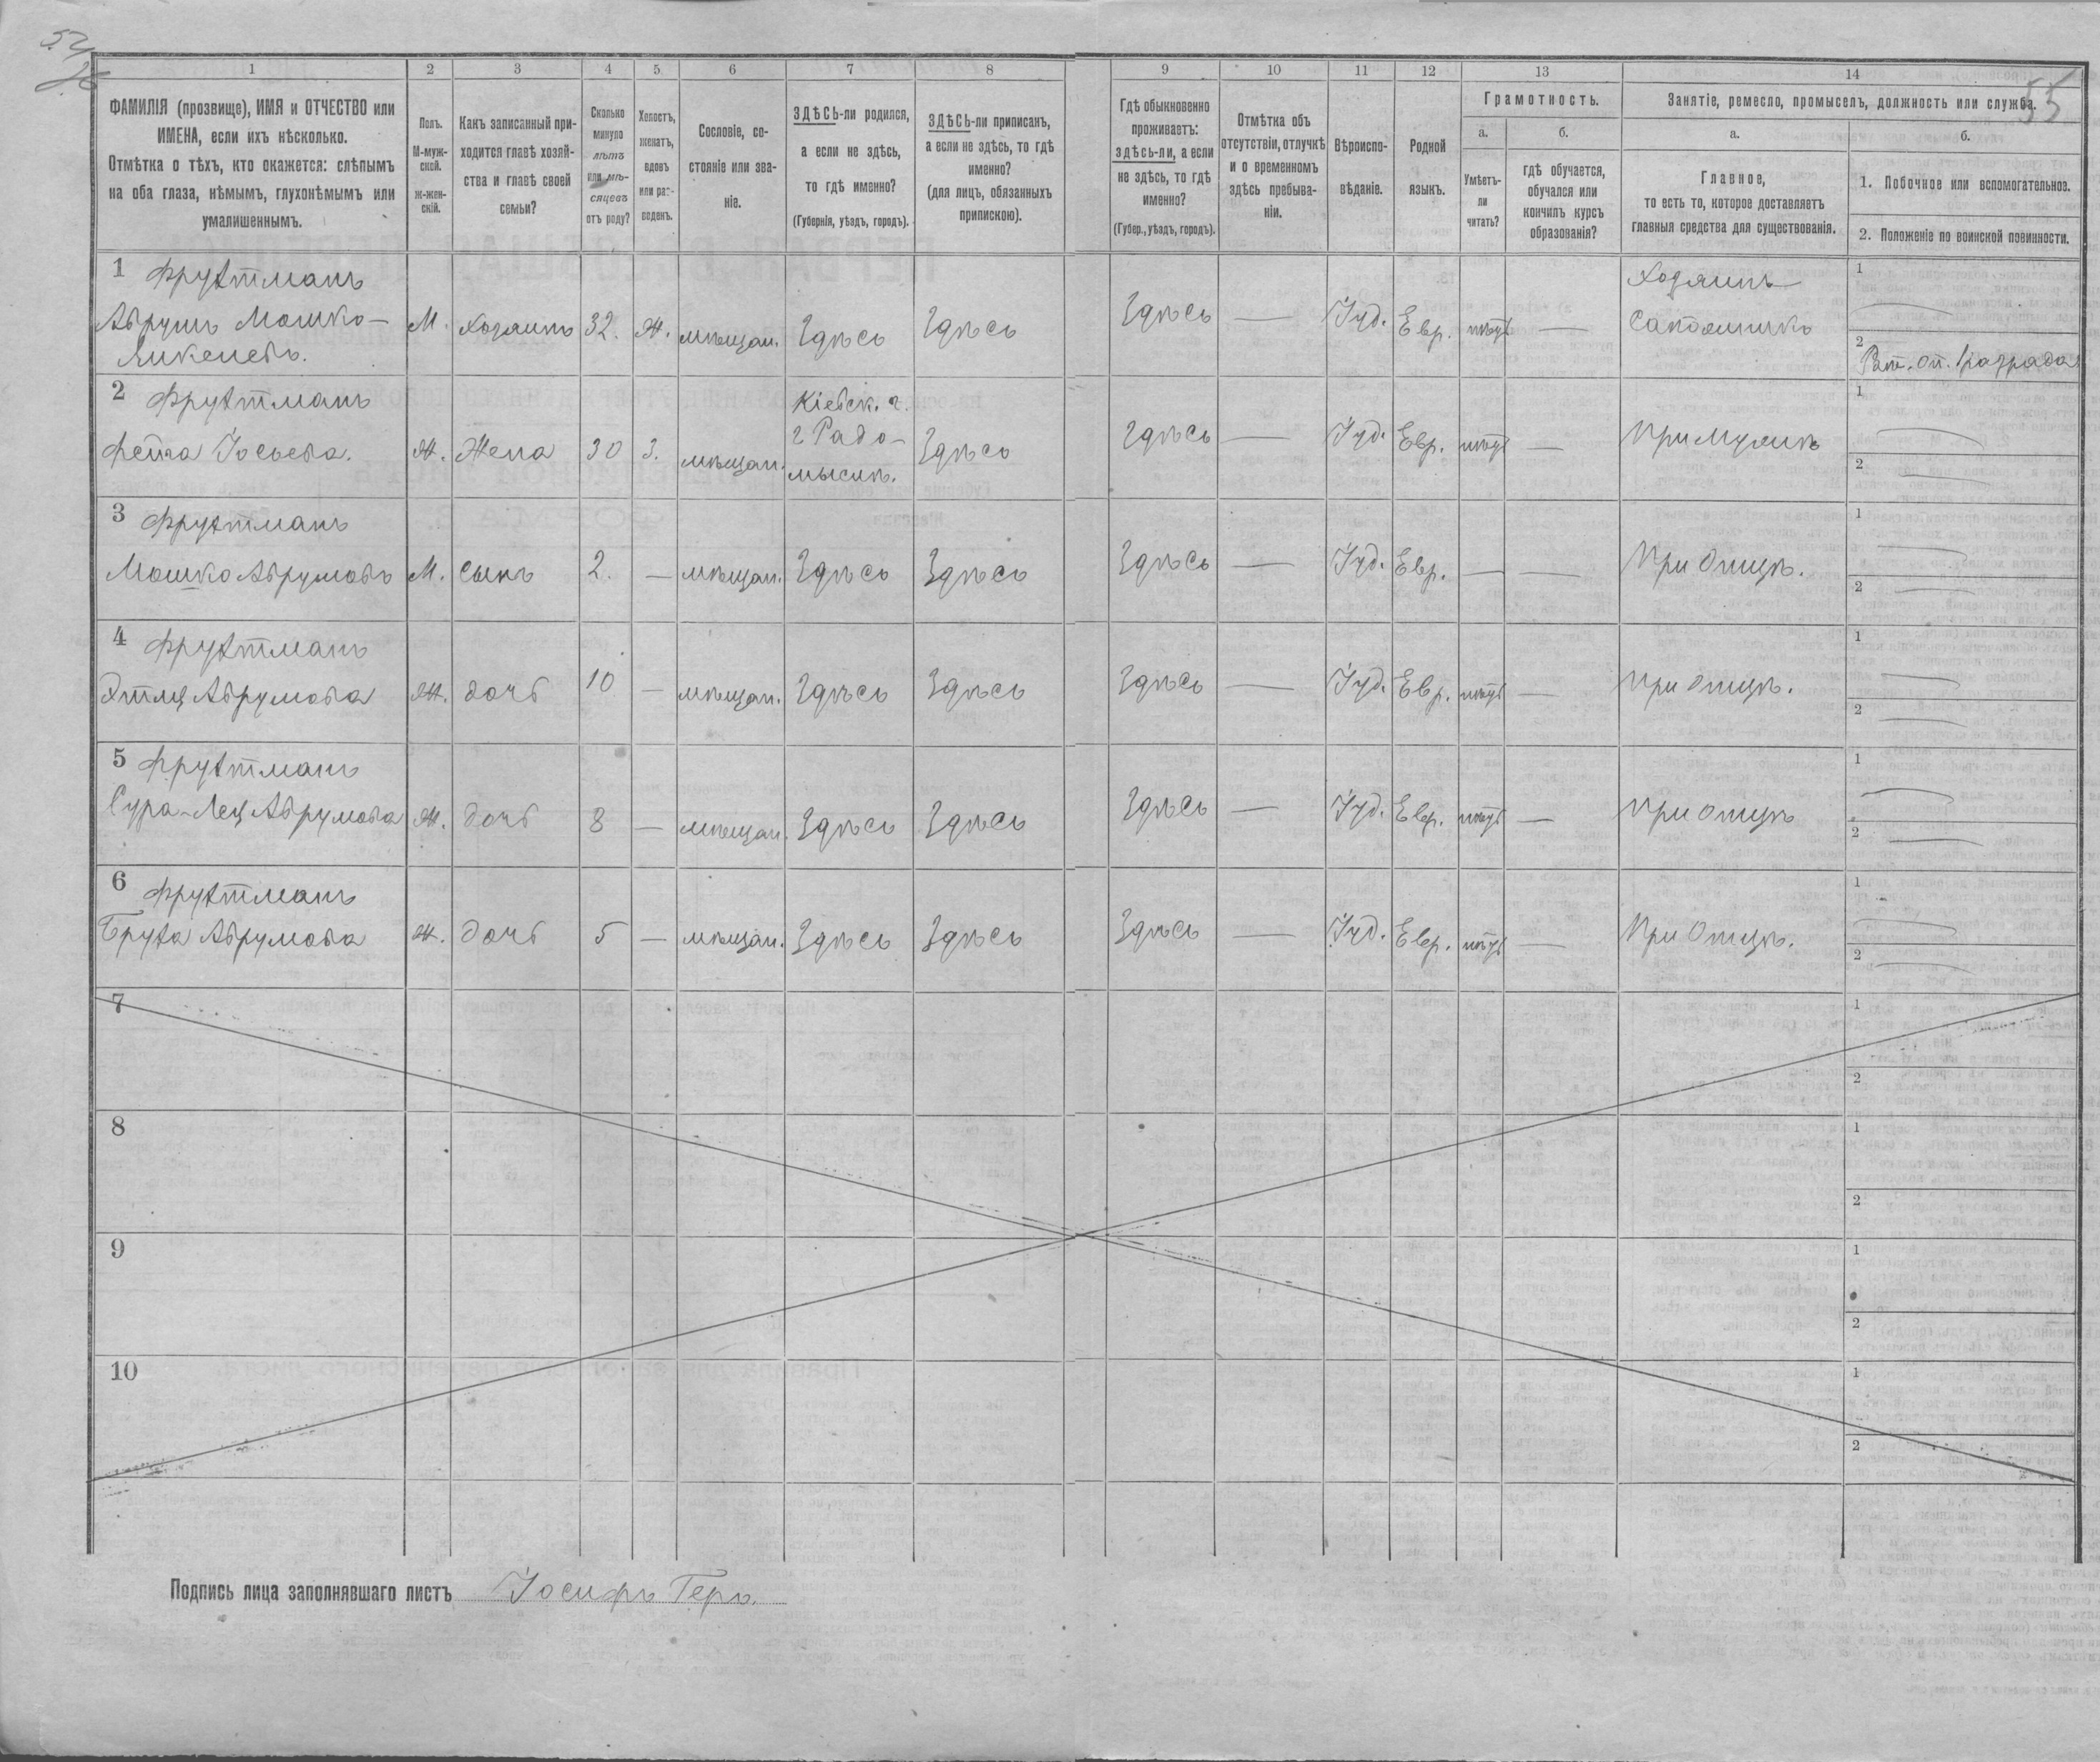 54
55
1 2 3 4 5. 6 7 8 9 10 11 12 13 14
ФАМИЛІЯ (прозвище), ИМЯ и ОТЧЕСТВО или
ИМЕНА, если ихъ нѣсколько.
Отмѣтка о тѣхъ, кто окажется: слѣпымъ
на оба глаза, нѣмымъ, глухонѣмымъ или
умалишеннымъ.
Полъ.
М-муж-
ской.
ж-жен-
скій.
Какъ записанный при-
ходится главѣ хозяй-
ства и главѣ своей
семьи?
Сколько
минуло
лѣтъ
или мѣ-
сяцевъ
отъ роду?
Холостъ,
женатъ,
вдовъ
или раз-
веденъ.
Сословіе, со-
стояніе или зва-
ніе.
ЗДѢСЬ-ли родился,
а если не здѣсь,
то гдѣ именно?
(Губернія, уѣздъ, городъ).
ЗДѢСЬ-ли приписанъ,
а если не здѣсь, то гдѣ
именно?
(для лицъ, обязанныхъ
припискою).
Гдѣ обыкновенно
проживаетъ:
здѣсь-ли, а если
не здѣсь, то гдѣ
именно?
(Губер., уѣздъ, городъ).
Отмѣтка объ
отсутствіи, отлучкѣ
и о временномъ
здѣсь пребыва-
ніи.
Вѣроиспо-
вѣданіе.
Родной
языкъ.
Грамотность.
а.
Умѣетъ-
ли
читать?
б.
гдѣ обучается,
обучался или
кончилъ курсъ
образованія?
Занятіе, ремесло, промыселъ, должность или служба.
а.
Главное,
то есть то, которое доставляетъ
главныя средства для существованія.
б.
1. Побочное или вспомогательное.
2. Положеніе по воинской повинности.
1 Фрухтманъ
Аврумъ Мошко-
Янкелевъ.
М. хозяинъ 32. Ж. мѣщан. Здѣсь Здѣсь Здѣсь — Іуд. Евр. нѣтъ —
Хозяинъ
1
2 Рат. оп. 1 разряда
2 Фрухтманъ
Фейга Іосьева.
Ж. Жена 30 З. мѣщан.
Кіевск. г.
г Радо-
мыслѣ.
Здѣсь Здѣсь — Іуд. Евр. нѣтъ — При мужѣ
1
2
3 Фрухтманъ
Мошко Аврумовъ М. Сынъ 2. — мѣщан. Здѣсь Здѣсь Здѣсь — Іуд. Евр. — — При Отцѣ.
1
2
4 Фрухтманъ
Аврумова Ж. дочь 10 — мѣщан. Здѣсь Здѣсь Здѣсь — Іуд. Евр. нѣтъ — При отцѣ.
1
2
5 Фрухтманъ
Сура-Лея Аврумова Ж. дочь 8 — мѣщан. Здѣсь Здѣсь Здѣсь — Іуд. Евр. нѣтъ — При отцѣ
1
2
6 Фрухтманъ
Бруха Аврумова Ж. дочь 5 — мѣщан. Здѣсь Здѣсь Здѣсь — Іуд. Евр. нѣтъ — При Отцѣ.
1
2
7
1
2
8
1
2
9
1
2
10
1
2
Подпись лица заполнявшаго листъ Іосифъ Геръ.